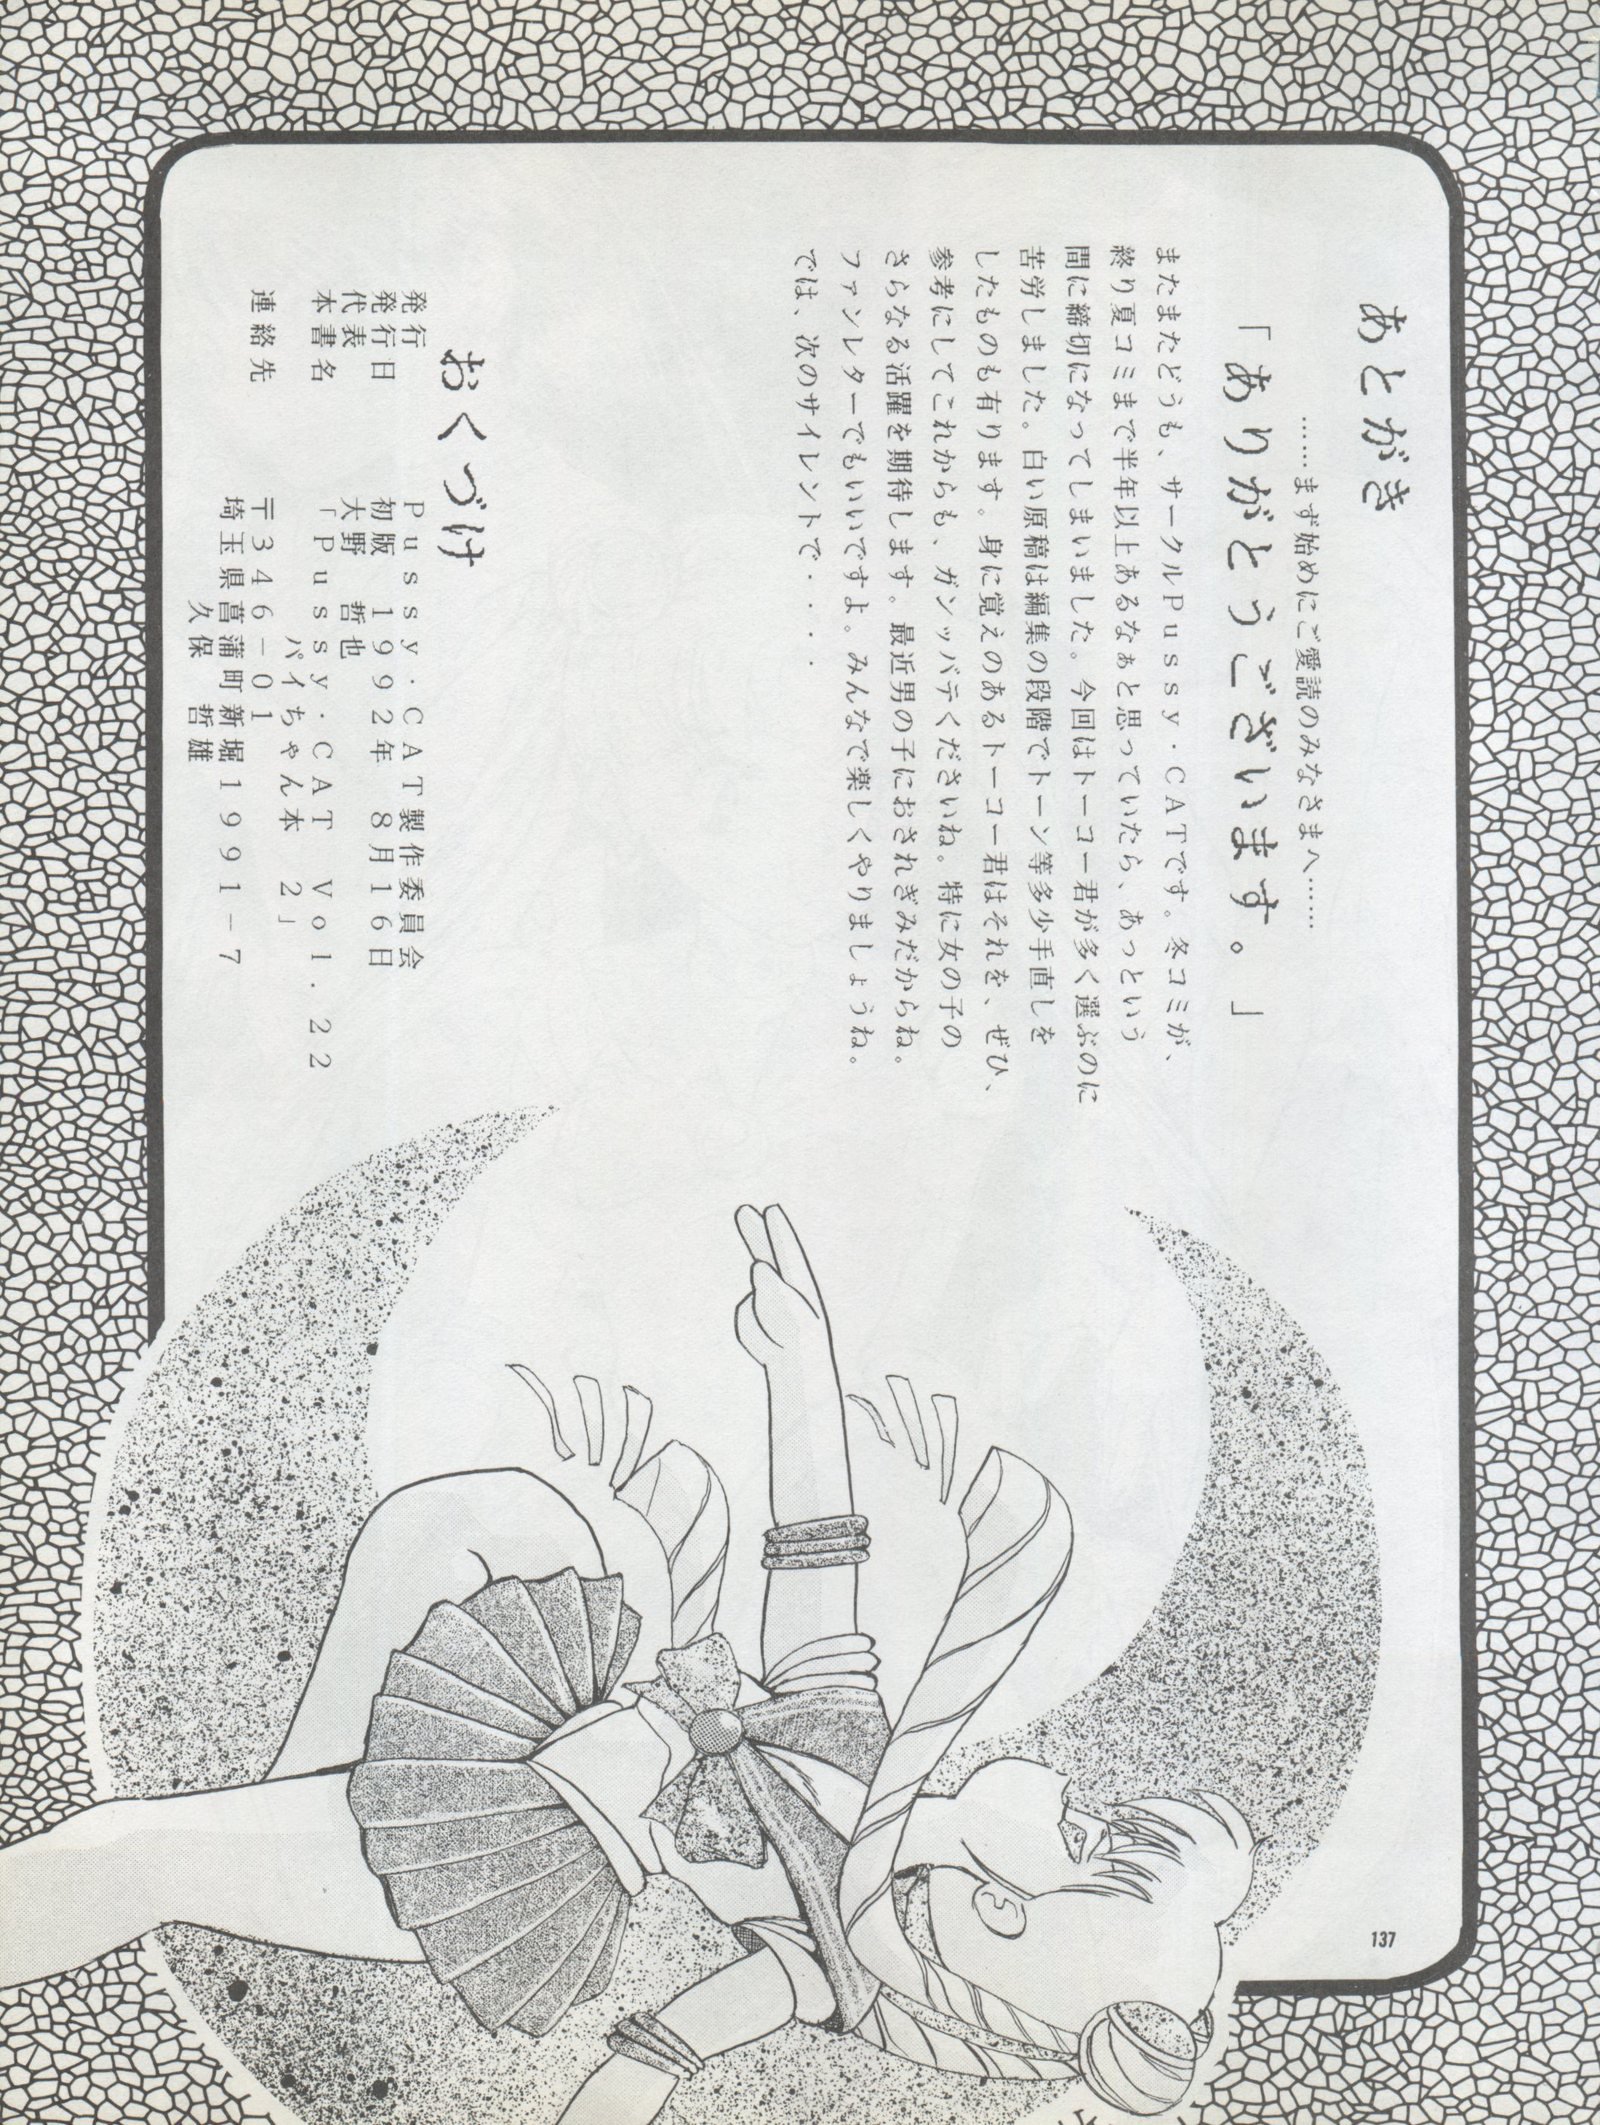 あとがき
……まず始めにご愛読のみなさまへ……
「ありがとうございます。」
またまたどうも、サークルＰｕｓｓｙ・ＣＡＴです。冬コミが、
終り夏コミまで半年以上あるなぁと思っていたら、あっという
間に締切になってしまいました。今回はトーコー君が多く選ぶのに
苦労しました。白い原稿は編集の段階でトーン等多少手直しを
したものも有ります。身に覚えのあるトーコー君はそれを、ぜひ、
参考にしてこれからも、ガンッバテくださいね。特に女の子の
さらなる活躍を期待します。最近男の子におされぎみだからね。
ファンレターでもいいですよ。みんなで楽しくやりましょうね。
では、次のサイレントで・・・・
おくづけ
発行 Ｐｕｓｓｙ・ＣＡＴ製作委員会
発行日 初版 １９９２年 ８月１６日
代表 大野 哲也
本書名 「Ｐｕｓｓｙ・ＣＡＴ Ｖｏｌ．２２
パイちゃん本 ２」
連絡先 〒３４６－０１
埼玉県菖蒲町新堀１９９１－７
久保 哲雄
137